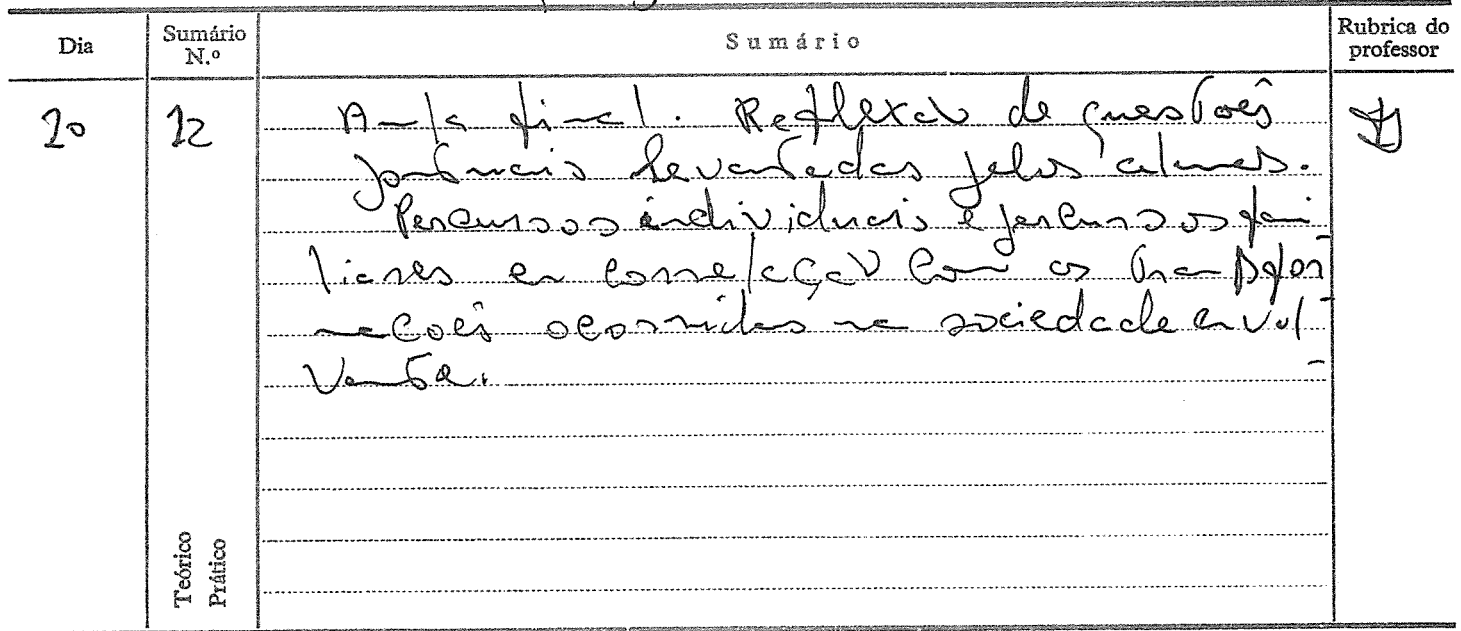 Dia
Sumário
N.º
Sumário
Rubrica do
professor
20
12
Aula final. Reflexão de questões
pontuais levantadas pelos alunos.
Percursos individuais e percursos fami
liares em correlação com as transfor-
mações ocorridas na sociedade envol-
vente.
Teórico
Prático